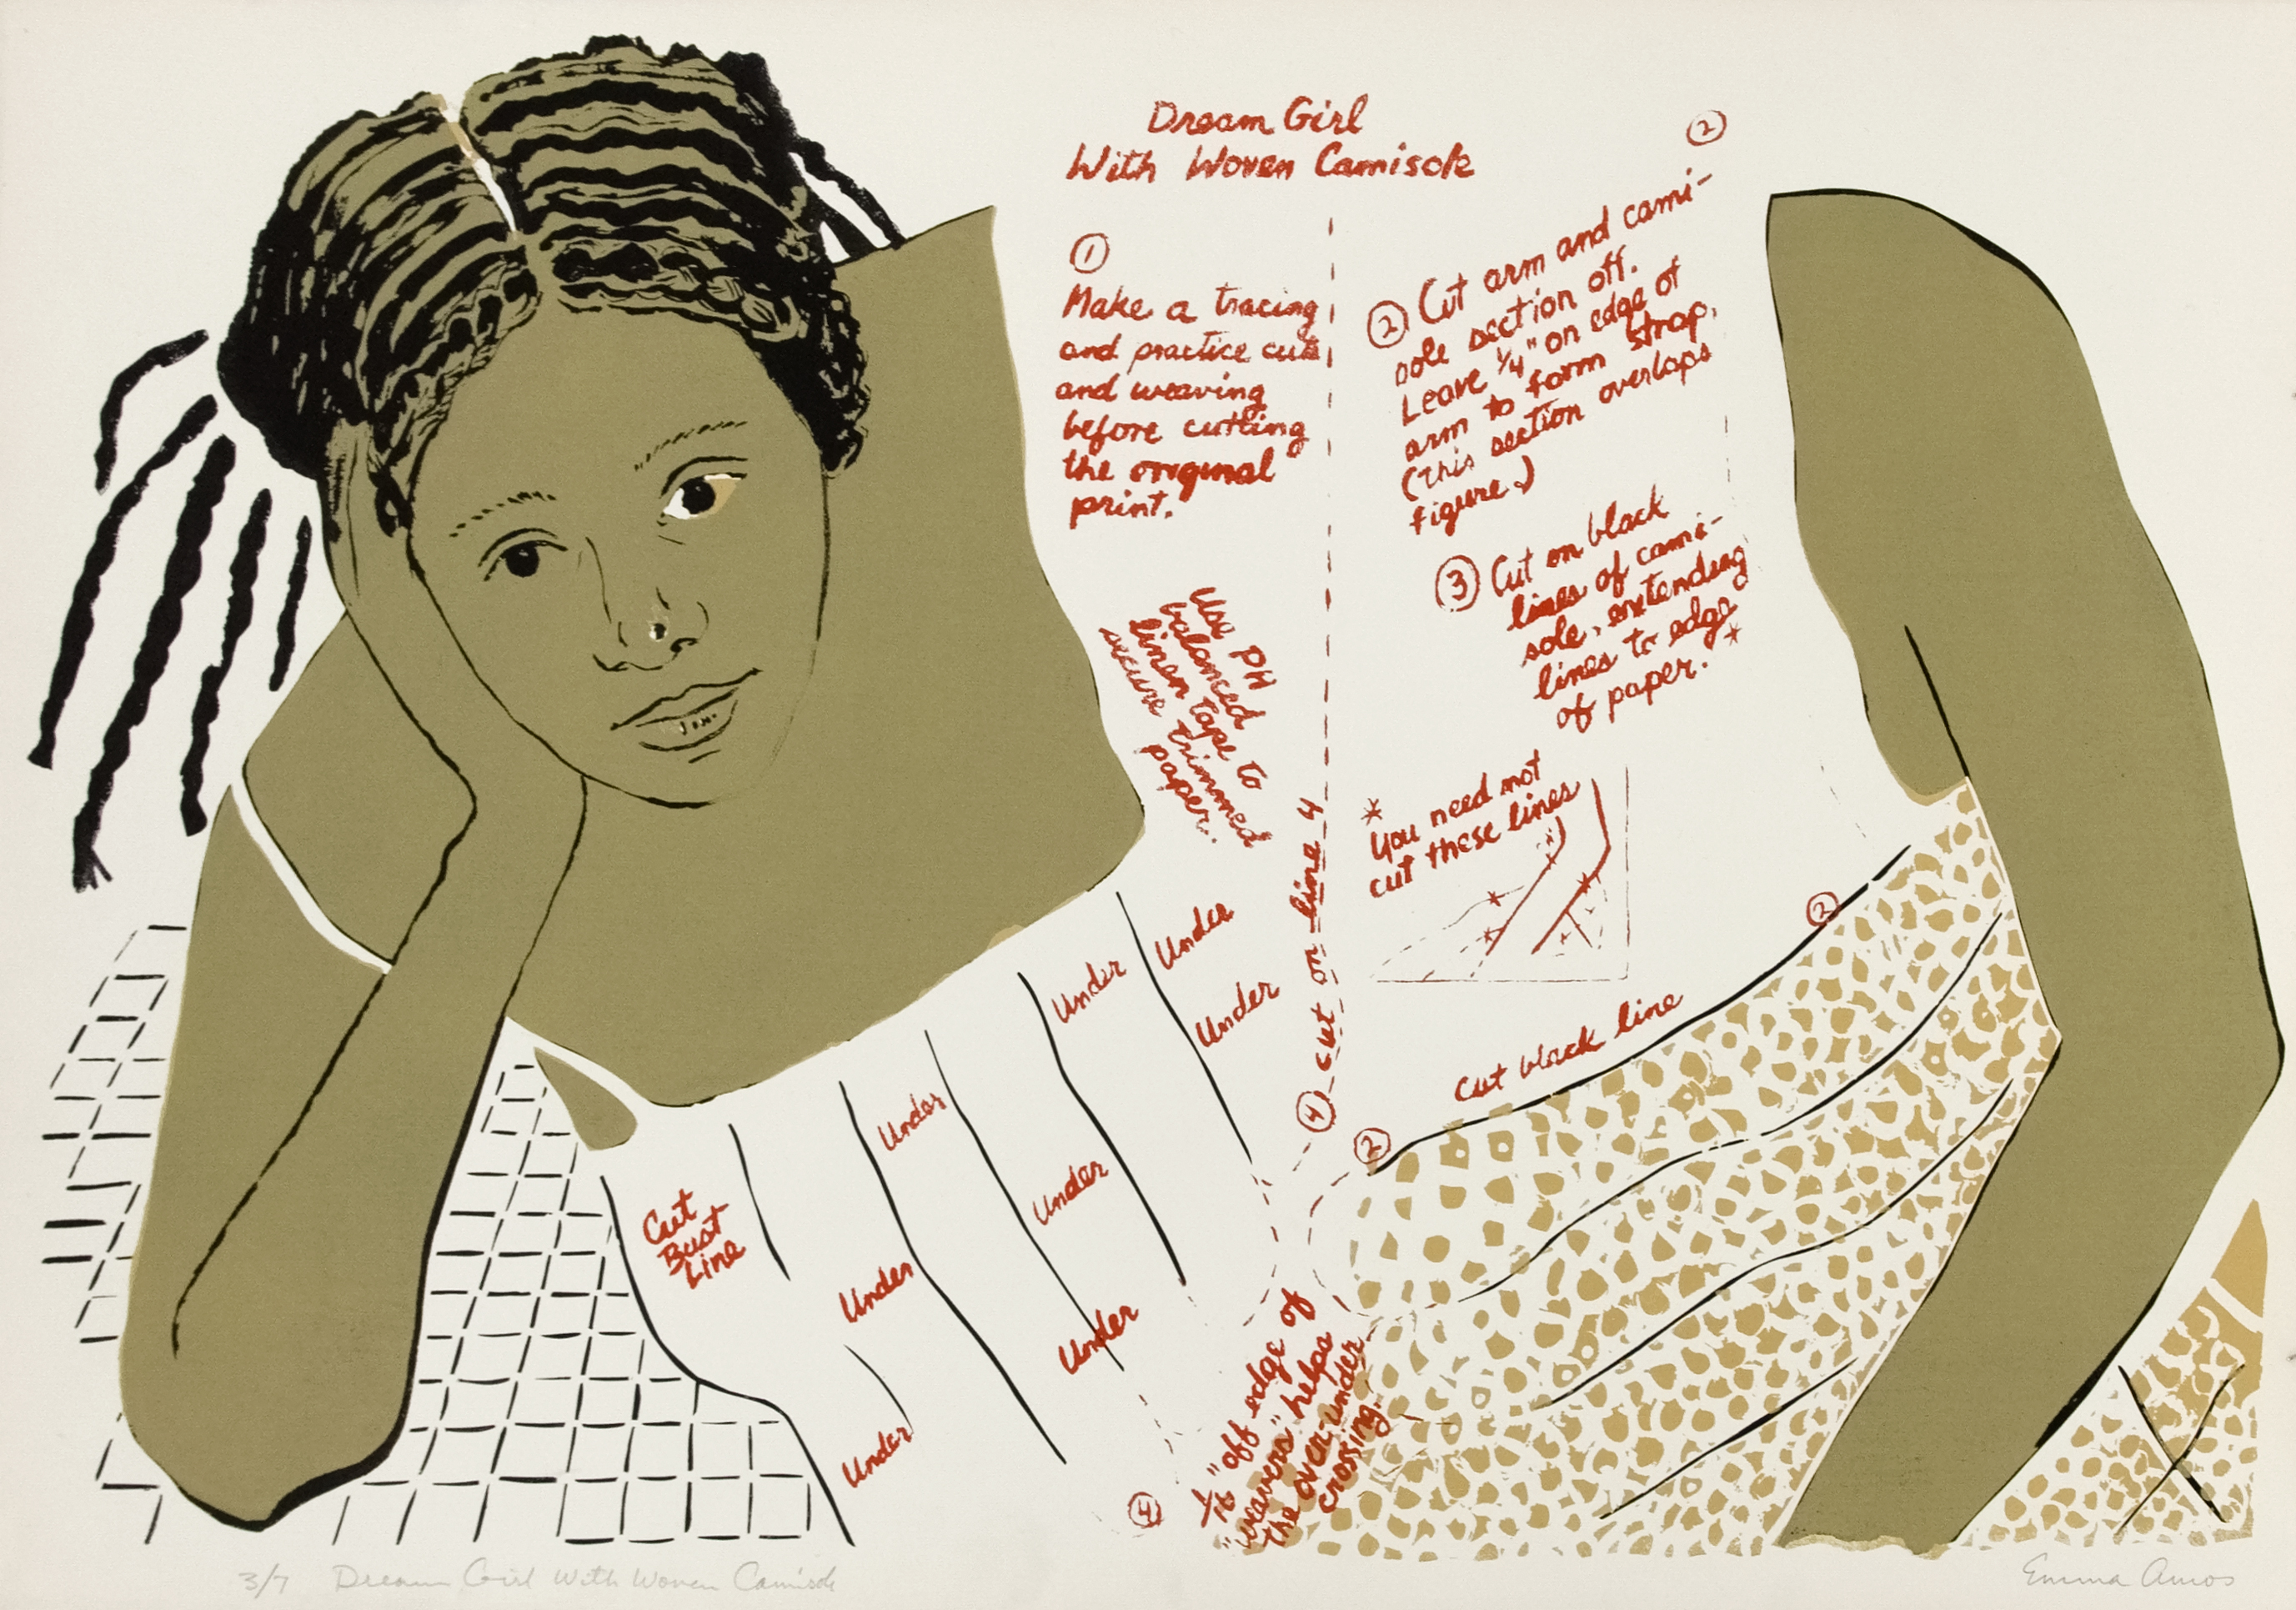 Dream Girl
With Woven Camisole
①
Make a tracing
and practice cuts
and weaving
before cutting
the original
print.
②
② Cut arm and cami-
sole section off.
Leave 1/4" on edge of
arm to form strap.
(this section overlaps
figure.)
③ Cut on black
lines of cami-
sole, extending
lines to edge
of paper. *
Use PH
balanced
linen tape to
secure trimmed
paper.
* You need not
cut these lines
④ cut on line 4
②
cut black line
②
Under
Under
Under
Under
Under
Under
Under
Under
Cut
Bust
Line
④
1/16 "off edge of
"weavers" helps
the over-under
crossing.
3/7 Dream Girl With Woven Camisole
Emma Amos